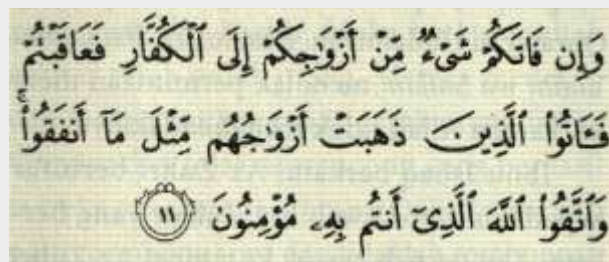 وَإِن فَاتَكُمْ شَىْءٌ مِّنْ أَزْوَٰجِكُمْ إِلَى ٱلْكُفَّارِ فَعَاقَبْتُمْ
فَـَٔاتُوا۟ ٱلَّذِينَ ذَهَبَتْ أَزْوَٰجُهُم مِّثْلَ مَآ أَنفَقُوا۟ ۚ
وَٱتَّقُوا۟ ٱللَّهَ ٱلَّذِىٓ أَنتُم بِهِۦ مُؤْمِنُونَ ١١